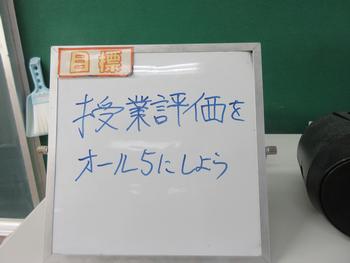 目標
授業評価を
オール5にしよう